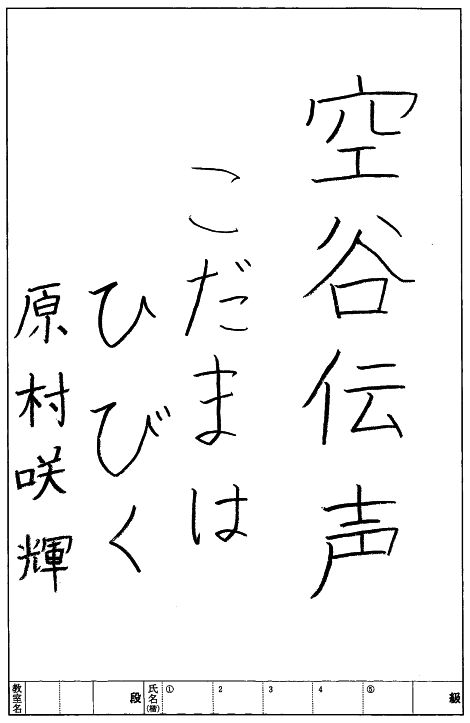 空谷伝声
こだまは
ひびく
原村咲輝
級 ⑤ 4 3 2 ① 氏名(楷) 段 教室名